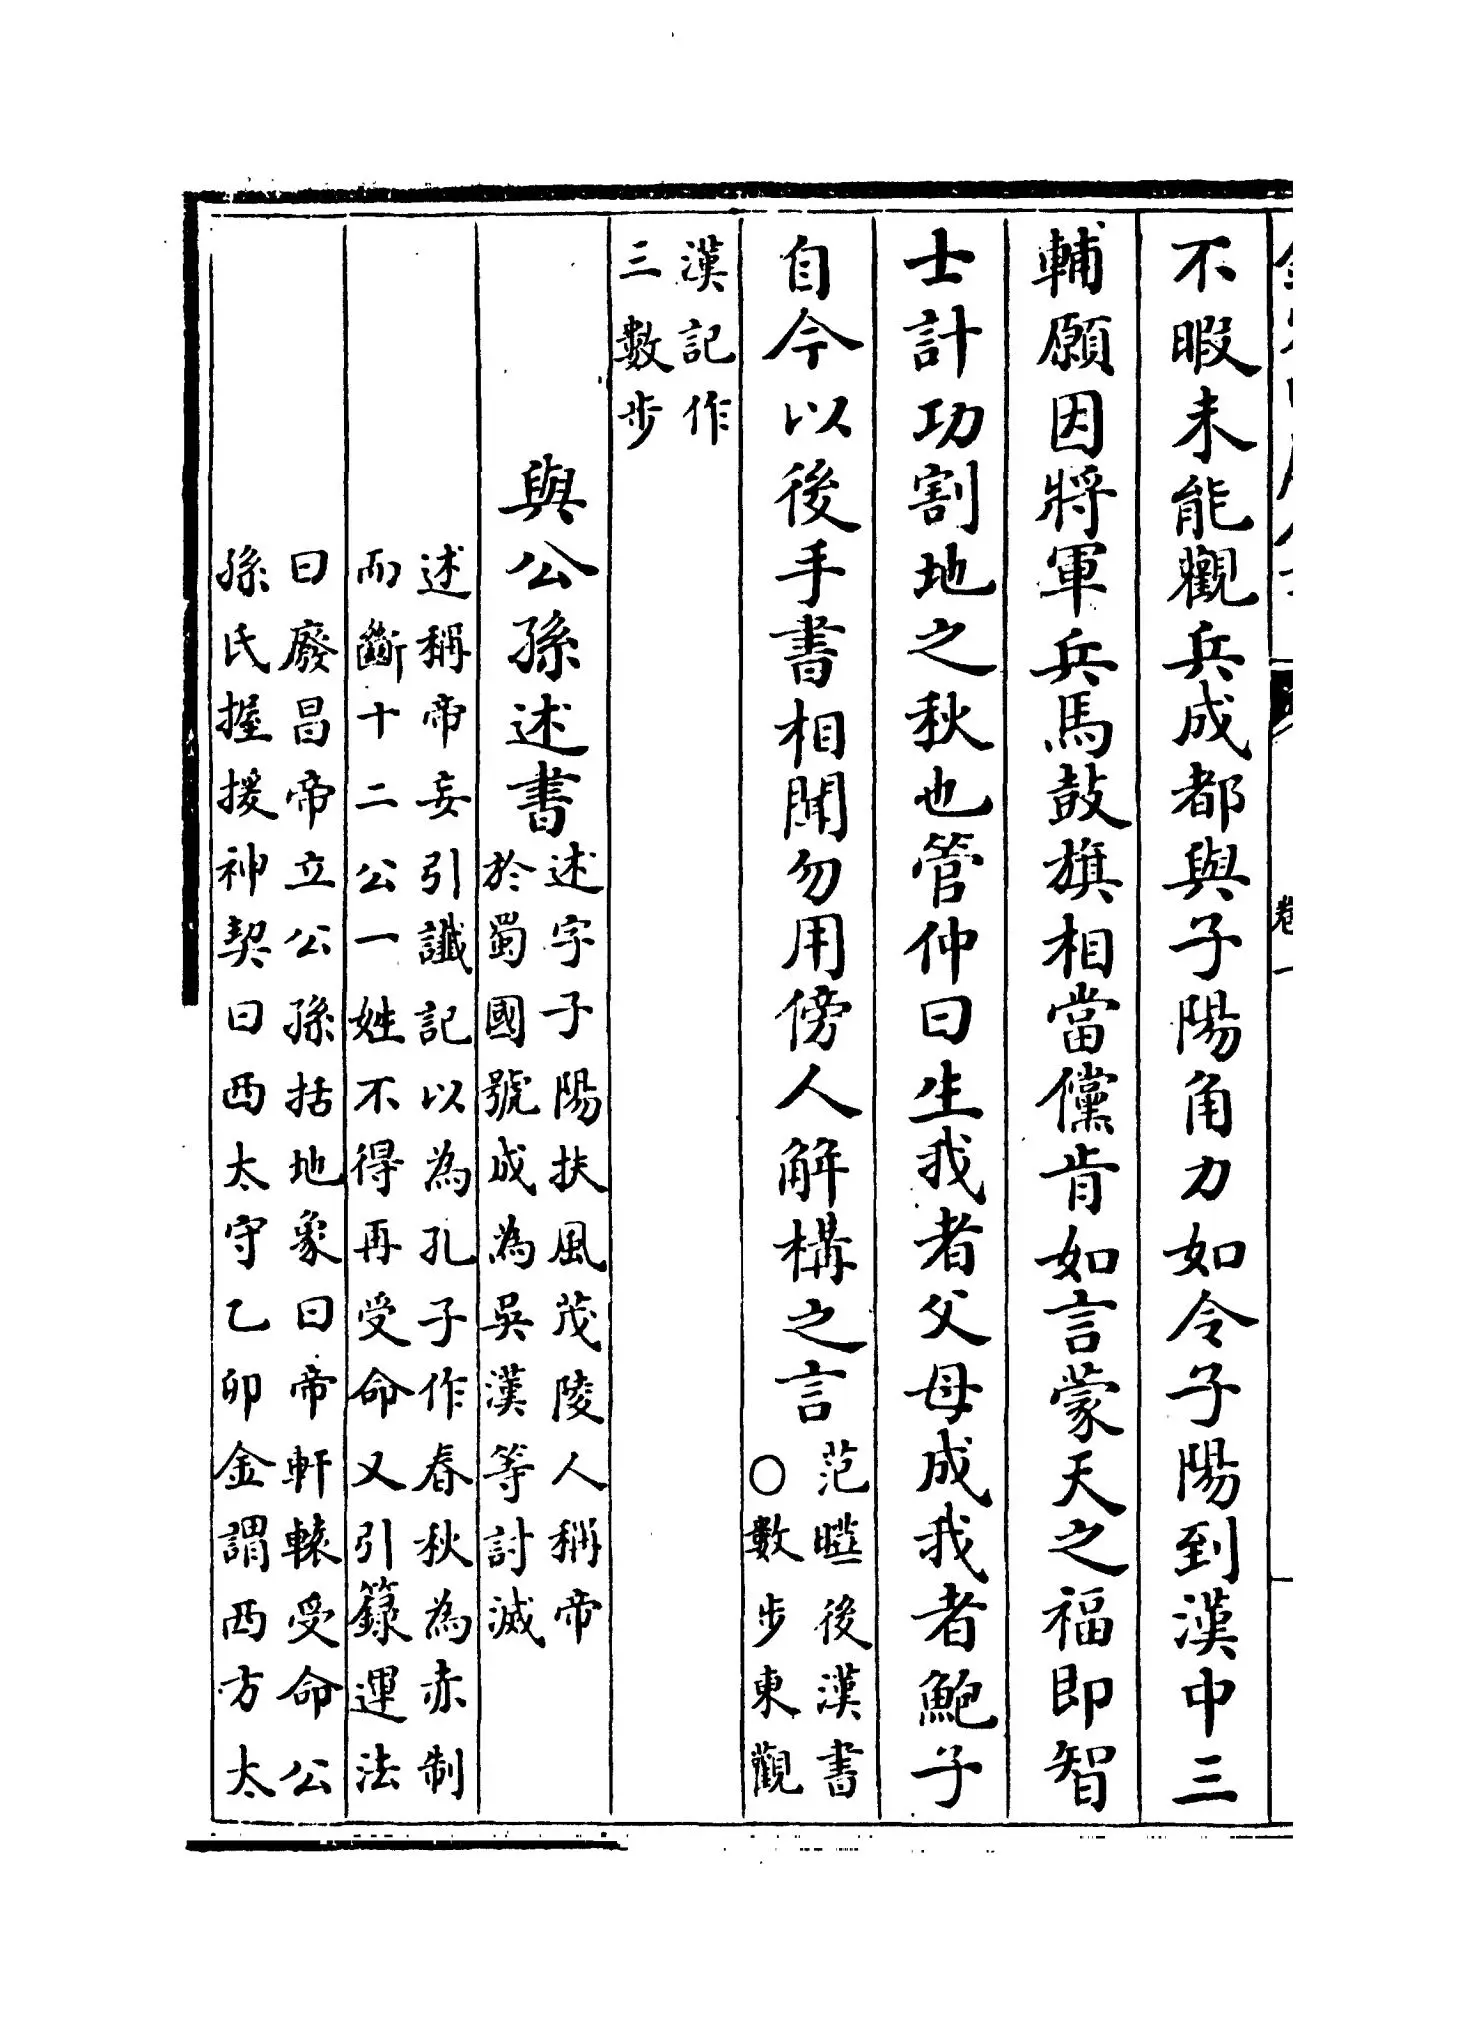 卷一
不暇未能觀兵成都與子陽角力如令子陽到漢中三
輔願因將軍兵馬鼓旗相當儻肯如言蒙天之福即智
士計功割地之秋也管仲曰生我者父母成我者鮑子
自今以後手書相聞勿用傍人解構之言范瞱後漢書
○數步東觀
漢記作
三數步
與公孫述書述字子陽扶風茂陵人稱帝
於蜀國號成為吳漢等討滅
述稱帝妄引讖記以為孔子作春秋為赤制
而斷十二公一姓不得再受命又引籙運法
曰廢昌帝立公孫括地象曰帝軒轅受命公
孫氏握援神契曰西太守乙卯金謂西方太